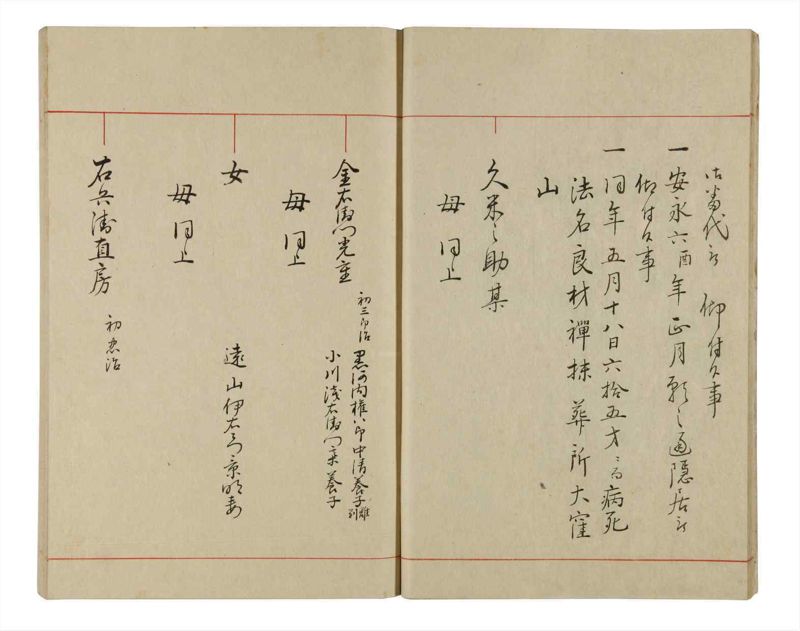 御当代被 仰付候事
一安永六酉年正月願之通隠居被
仰付候事
一同年五月十八日六拾五才ニ而病死
法名良材禪抹葬所大窪
山
久米之助某
母同上
金右衛門光重
初三郎治
黒河内権八郎中清養子離別
小川浅右衛門
養子
母同上
女
遠山伊右衛門景明妻
母同上
右兵衛直房
初忠治